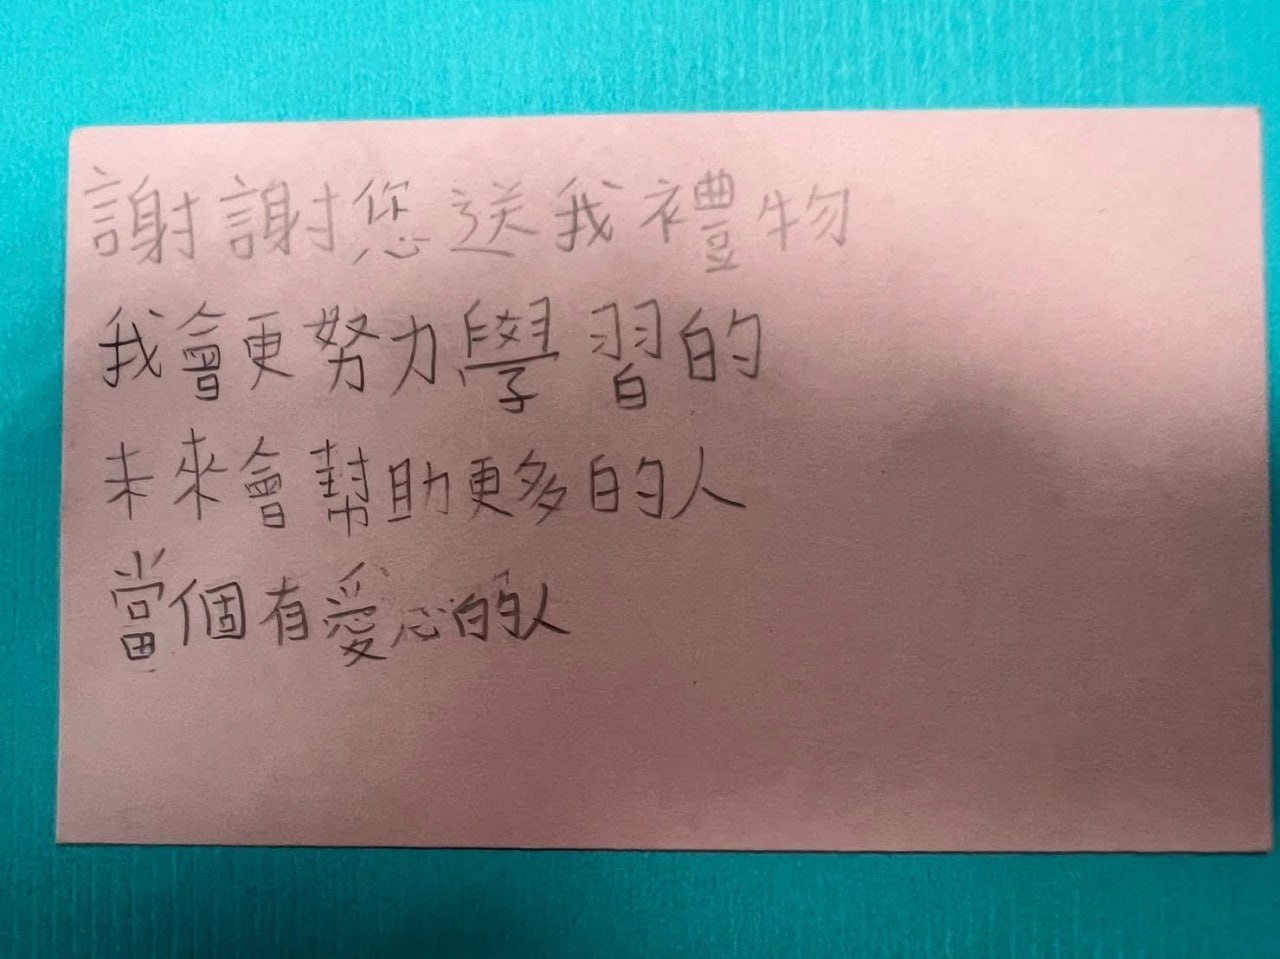 謝謝您送我禮物
我會更努力學習的
未來會幫助更多的人
當個有愛心的人